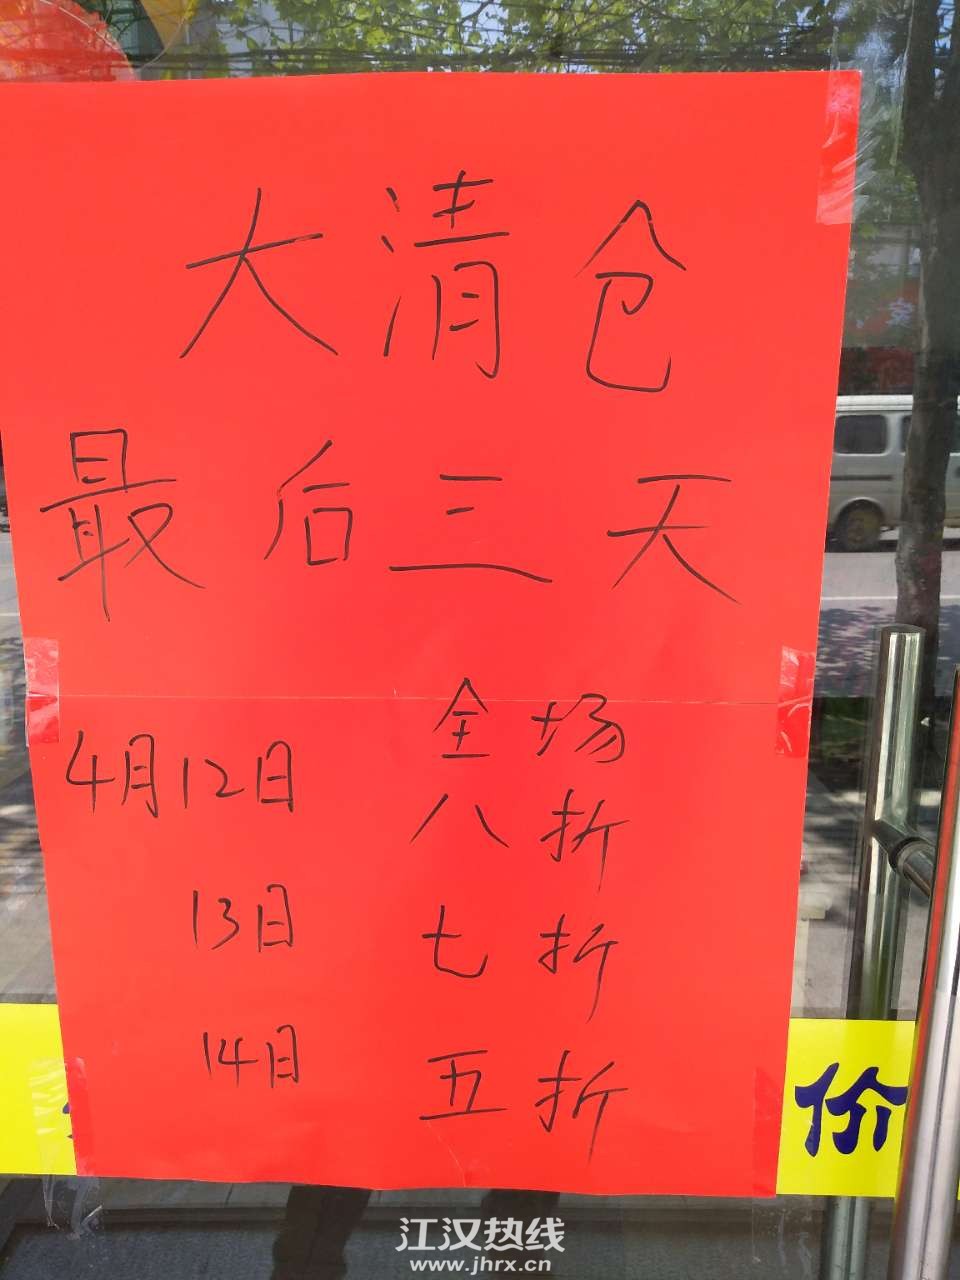 大清仓
最后三天
全场
4月12日 八折
13日 七折
14日 五折
价
江汉热线
www.jhrx.cn